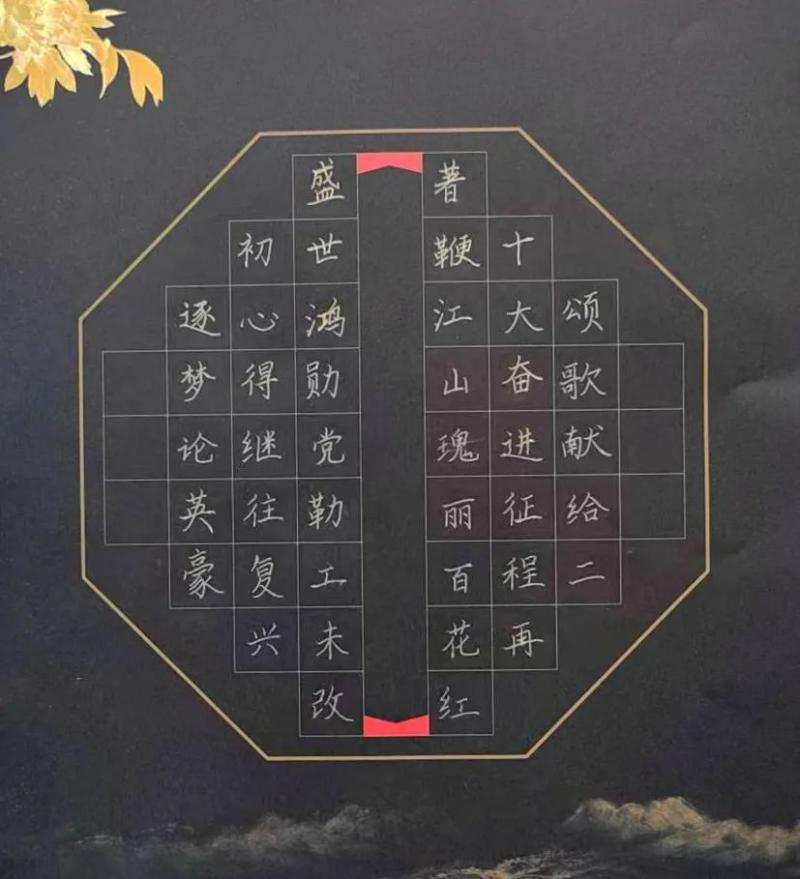 颂歌献给二
十大奋进征程再
著鞭江山瑰丽百花红
盛世鸿勋党勒工未改
初心得继往复兴
逐梦论英豪